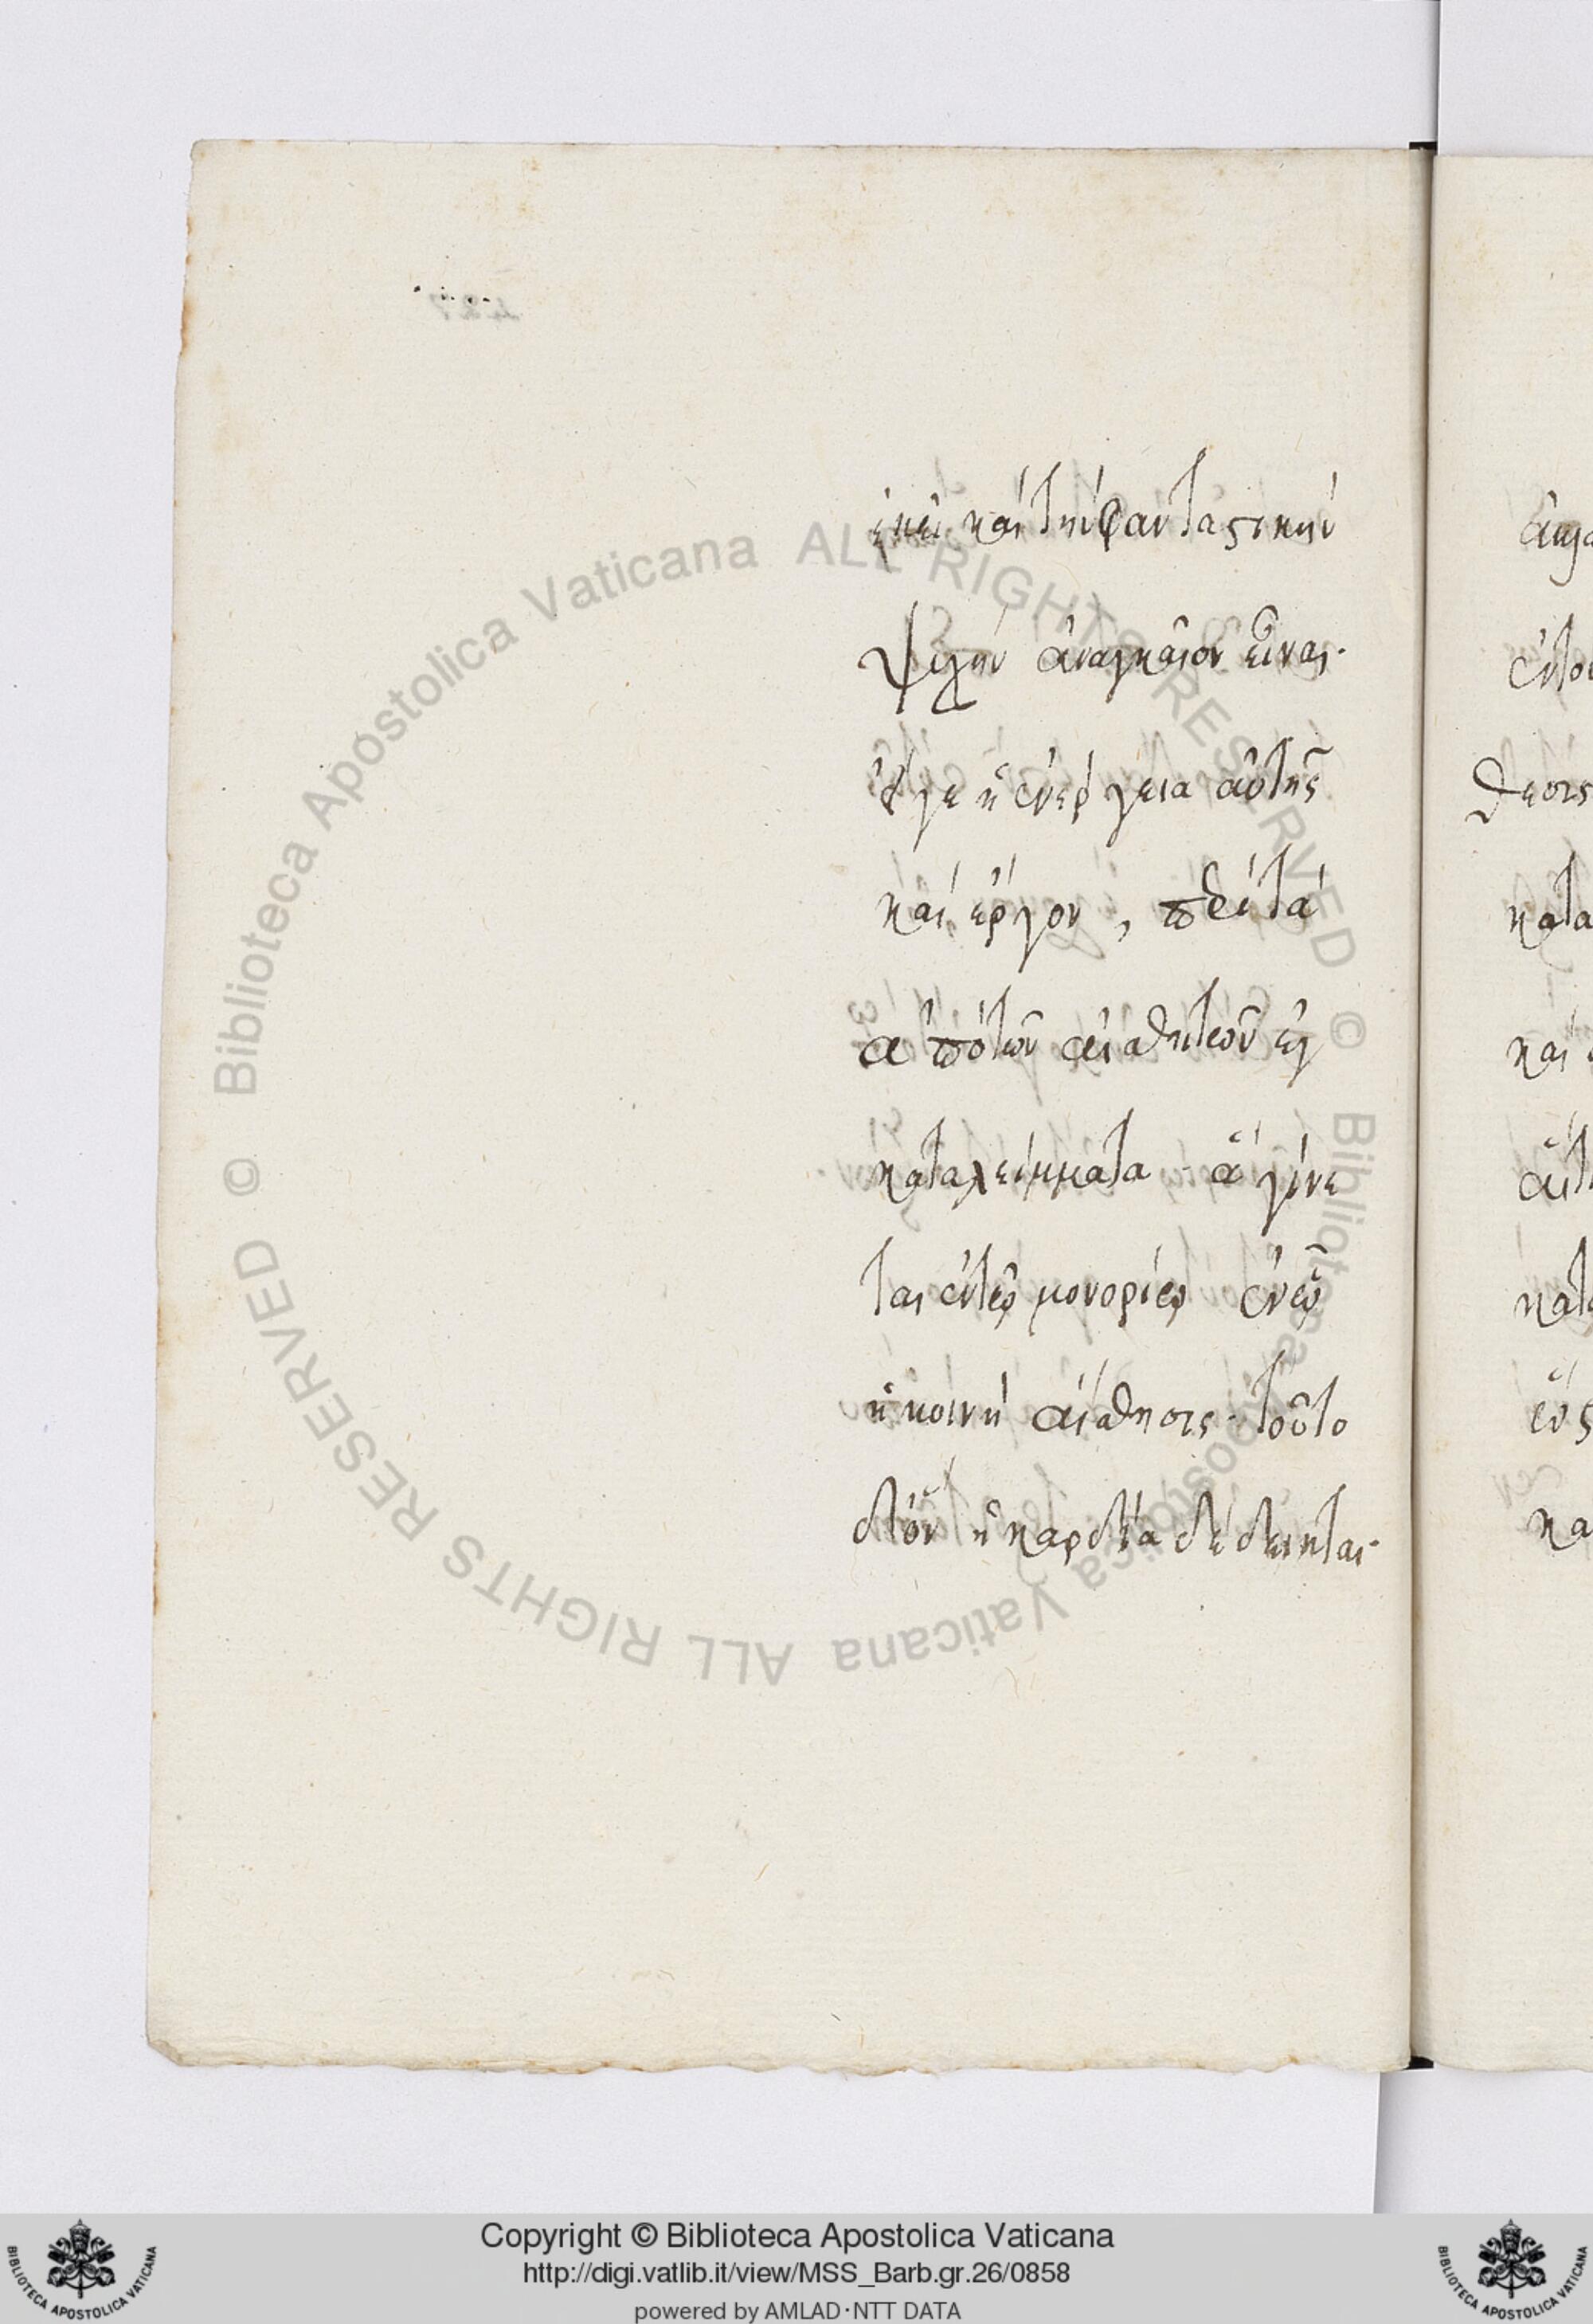 ἐκεῖ καὶ τὴν φανταστικὴν
ψυχὴν ἀναγκαῖον εἶναι·
εἴγε ἡ ἐνέργεια αὐτῆς
καὶ ἔργον, περὶ τὰ
ἀπὸ τῶν αἰσθητῶν ἐγ
καταλείμματα· ἃ γίνε
ται ἐν τῷ μονορίῳ ἐν ᾧ
ἡ κοινὴ αἴσθησις· τοῦτο
δ' ὂν ἡ καρδία δέδεικται·
Copyright © Biblioteca Apostolica Vaticana
http://digi.vatlib.it/view/MSS_Barb.gr.26/0858
powered by AMLAD·NTT DATA
© Biblioteca Apostolica Vaticana ALL RIGHTS RESERVED © Biblioteca Apostolica Vaticana ALL RIGHTS RESERVED
BIBLIOTECA APOSTOLICA VATICANA
BIBLIOTECA APOSTOLICA VATICANA